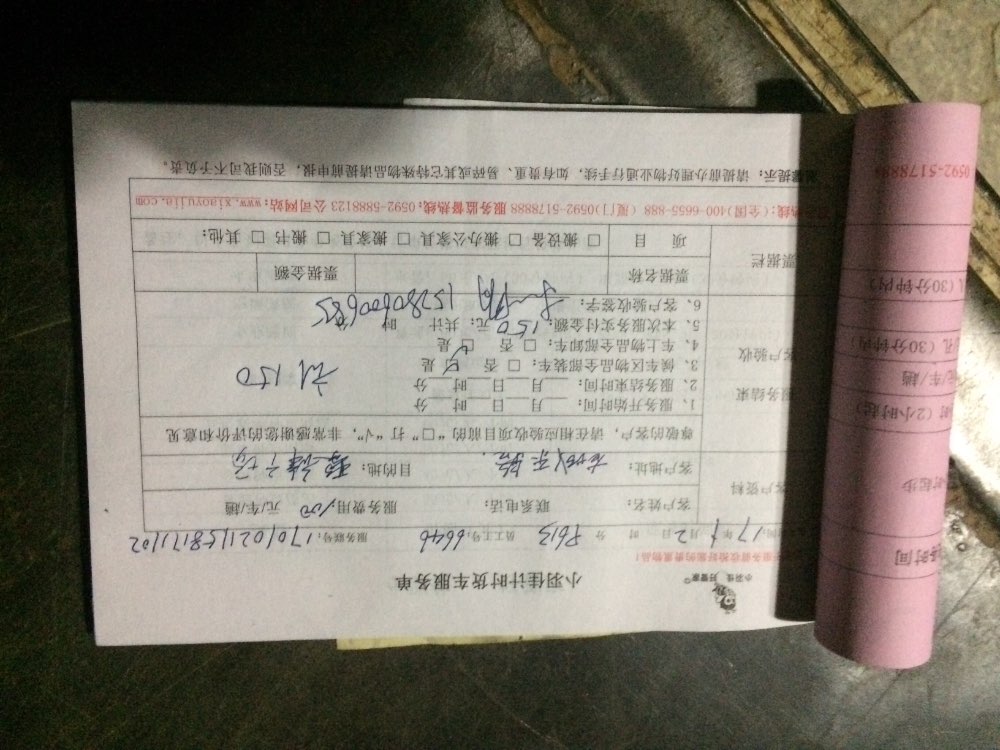 小羽佳 好管家
小羽佳计时货车服务单
时间:17年1月2日 时 分 P613 员工工号:6646 服务账号:1701021158171102
客户资料
客户姓名: 联系电话: 服务费用100元/车/趟
客户地址: 目的地:
尊敬的客户,请在相应验收项目前的“口”打“√”,非常感谢您的评价和意见
服务结束
客户验收
1、服务开始时间: 月 日 时 分
2、服务结束时间: 月 日 时 分
3、候车区物品全部装车:□ 否 ☑ 是 150
4、车上物品全部卸车:□ 否 ☑ 是
5、本次服务实付金额:150元;共计 时 分
6、客户验收签字: 15280600685
票据栏
票据名称 票据金额
项 目 □ 搬设备 □ 搬办公家具 □ 搬家具 □ 搬书 □ 其他:
热线:(全国)400-6655-888 (厦门)0592-5178888 服务监督热线:0592-5888123 公司网站:www.xiaoyujia.com
温馨提示:请提前办理好物业通行手续,如有贵重、易碎或其它特殊物品请提前申报,否则我司不予负责。
时间
时起步
时(2小时起)
元/车/趟
(30分钟内)
(30分钟内)
0592-5178888